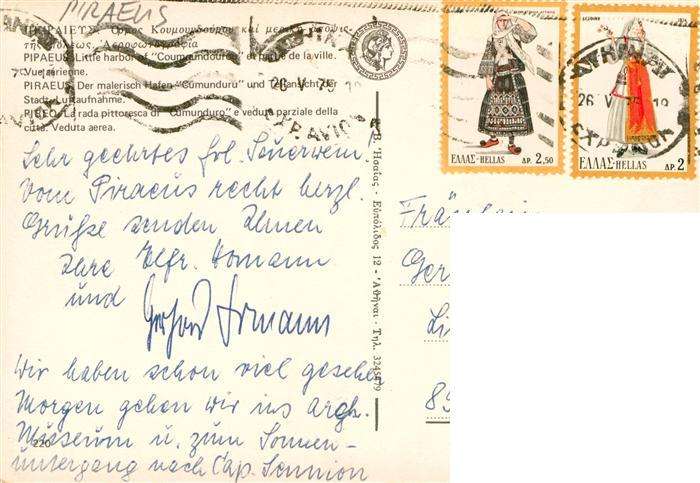 PIRAEUS
ΠΕΙΡΑΙΕΥΣ. Όρμος Κουμουνδούρου καὶ μερικὴ ἄποψις
τῆς πόλεως. Ἀεροφωτογραφία
PIPAEUS. Little harbor of "Coumoundouros" et partie de la ville.
Vue aérienne.
PIRAEUS. Der malerisch Hafen "Cumunduru" und Teilansicht der
Stadt. Luftaufnahme.
PIREO. La rada pittoresca di "Cumunduro" e veduta parziale della
cita. Veduta aerea.
26 V 75 19
PAR AVION
ΕΛΛΑΣ-HELLAS ΔΡ. 2,50
ΕΛΛΑΣ-HELLAS ΔΡ. 2
ΑΘΗΝΑΙ
26 V 75 19
EXPRMON
Sehr geehrtes Frl. Sauerwein.
Vom Piraeus recht herzl.
Grüße senden Ihnen
Ihre Elfr. Homann
und Gerhard Homann
Wir haben schon viel gesehen
Morgen gehen wir ins Argh.
Museum u. zum Sonnen-
untergang nach Cap. Sounion
220
Ἀθῆναι - Τηλ. 3245979
Fräulein
Ger
Li
89